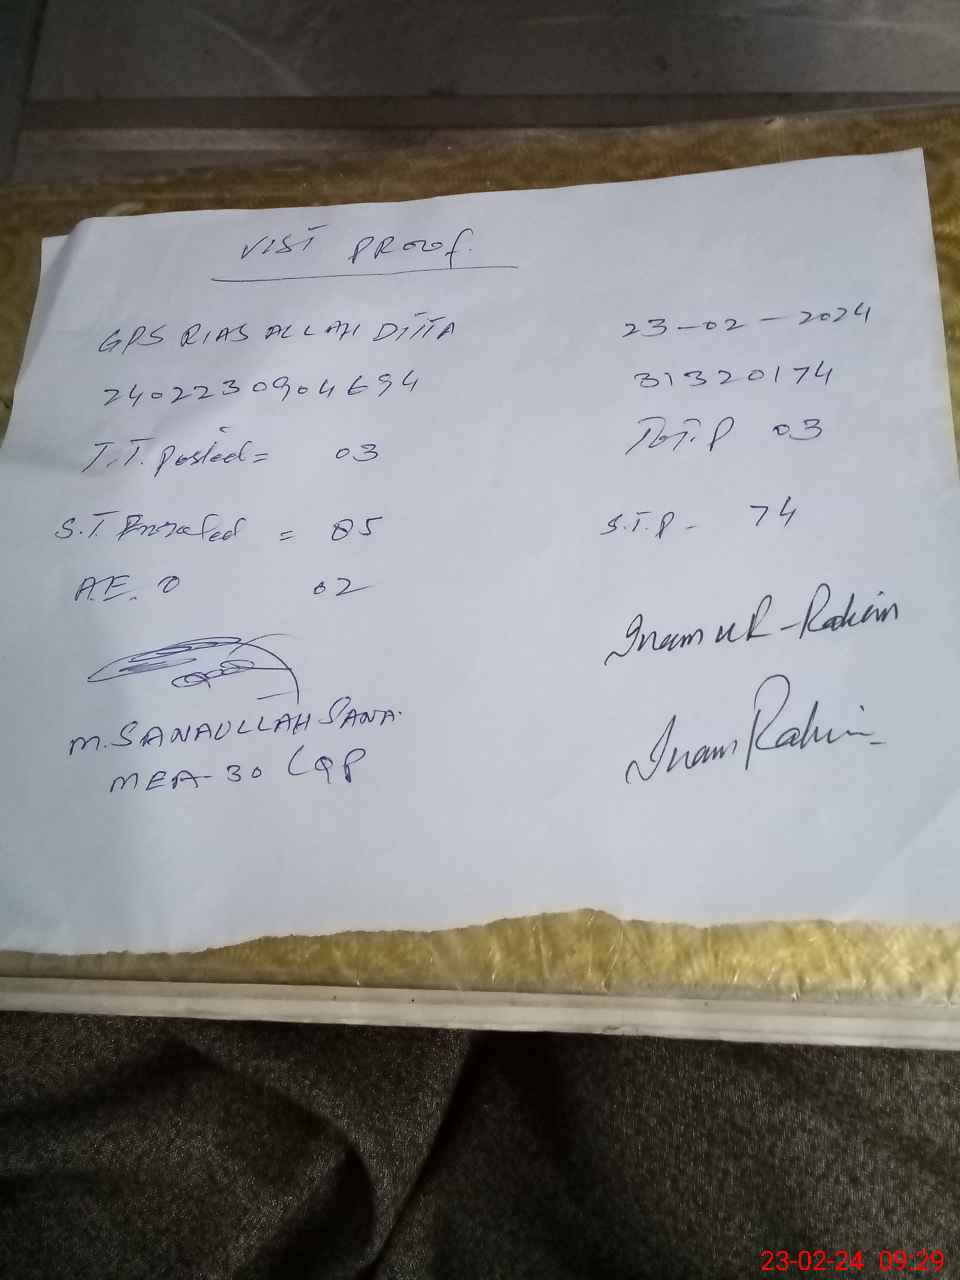 VISIT PROOF.
GPS RIAS ALLAH DITTA 23-02-2024
2402230904694 31320174
T.T. Posted = 03 TOT.P 03
S.T. Enrolled = 85 S.T.P - 74
A.E.O 02
Inam uR-Rahim
M. SANAULLAH SANA. Inam Rahim
MEA-30 LQP
23-02-24 09:29